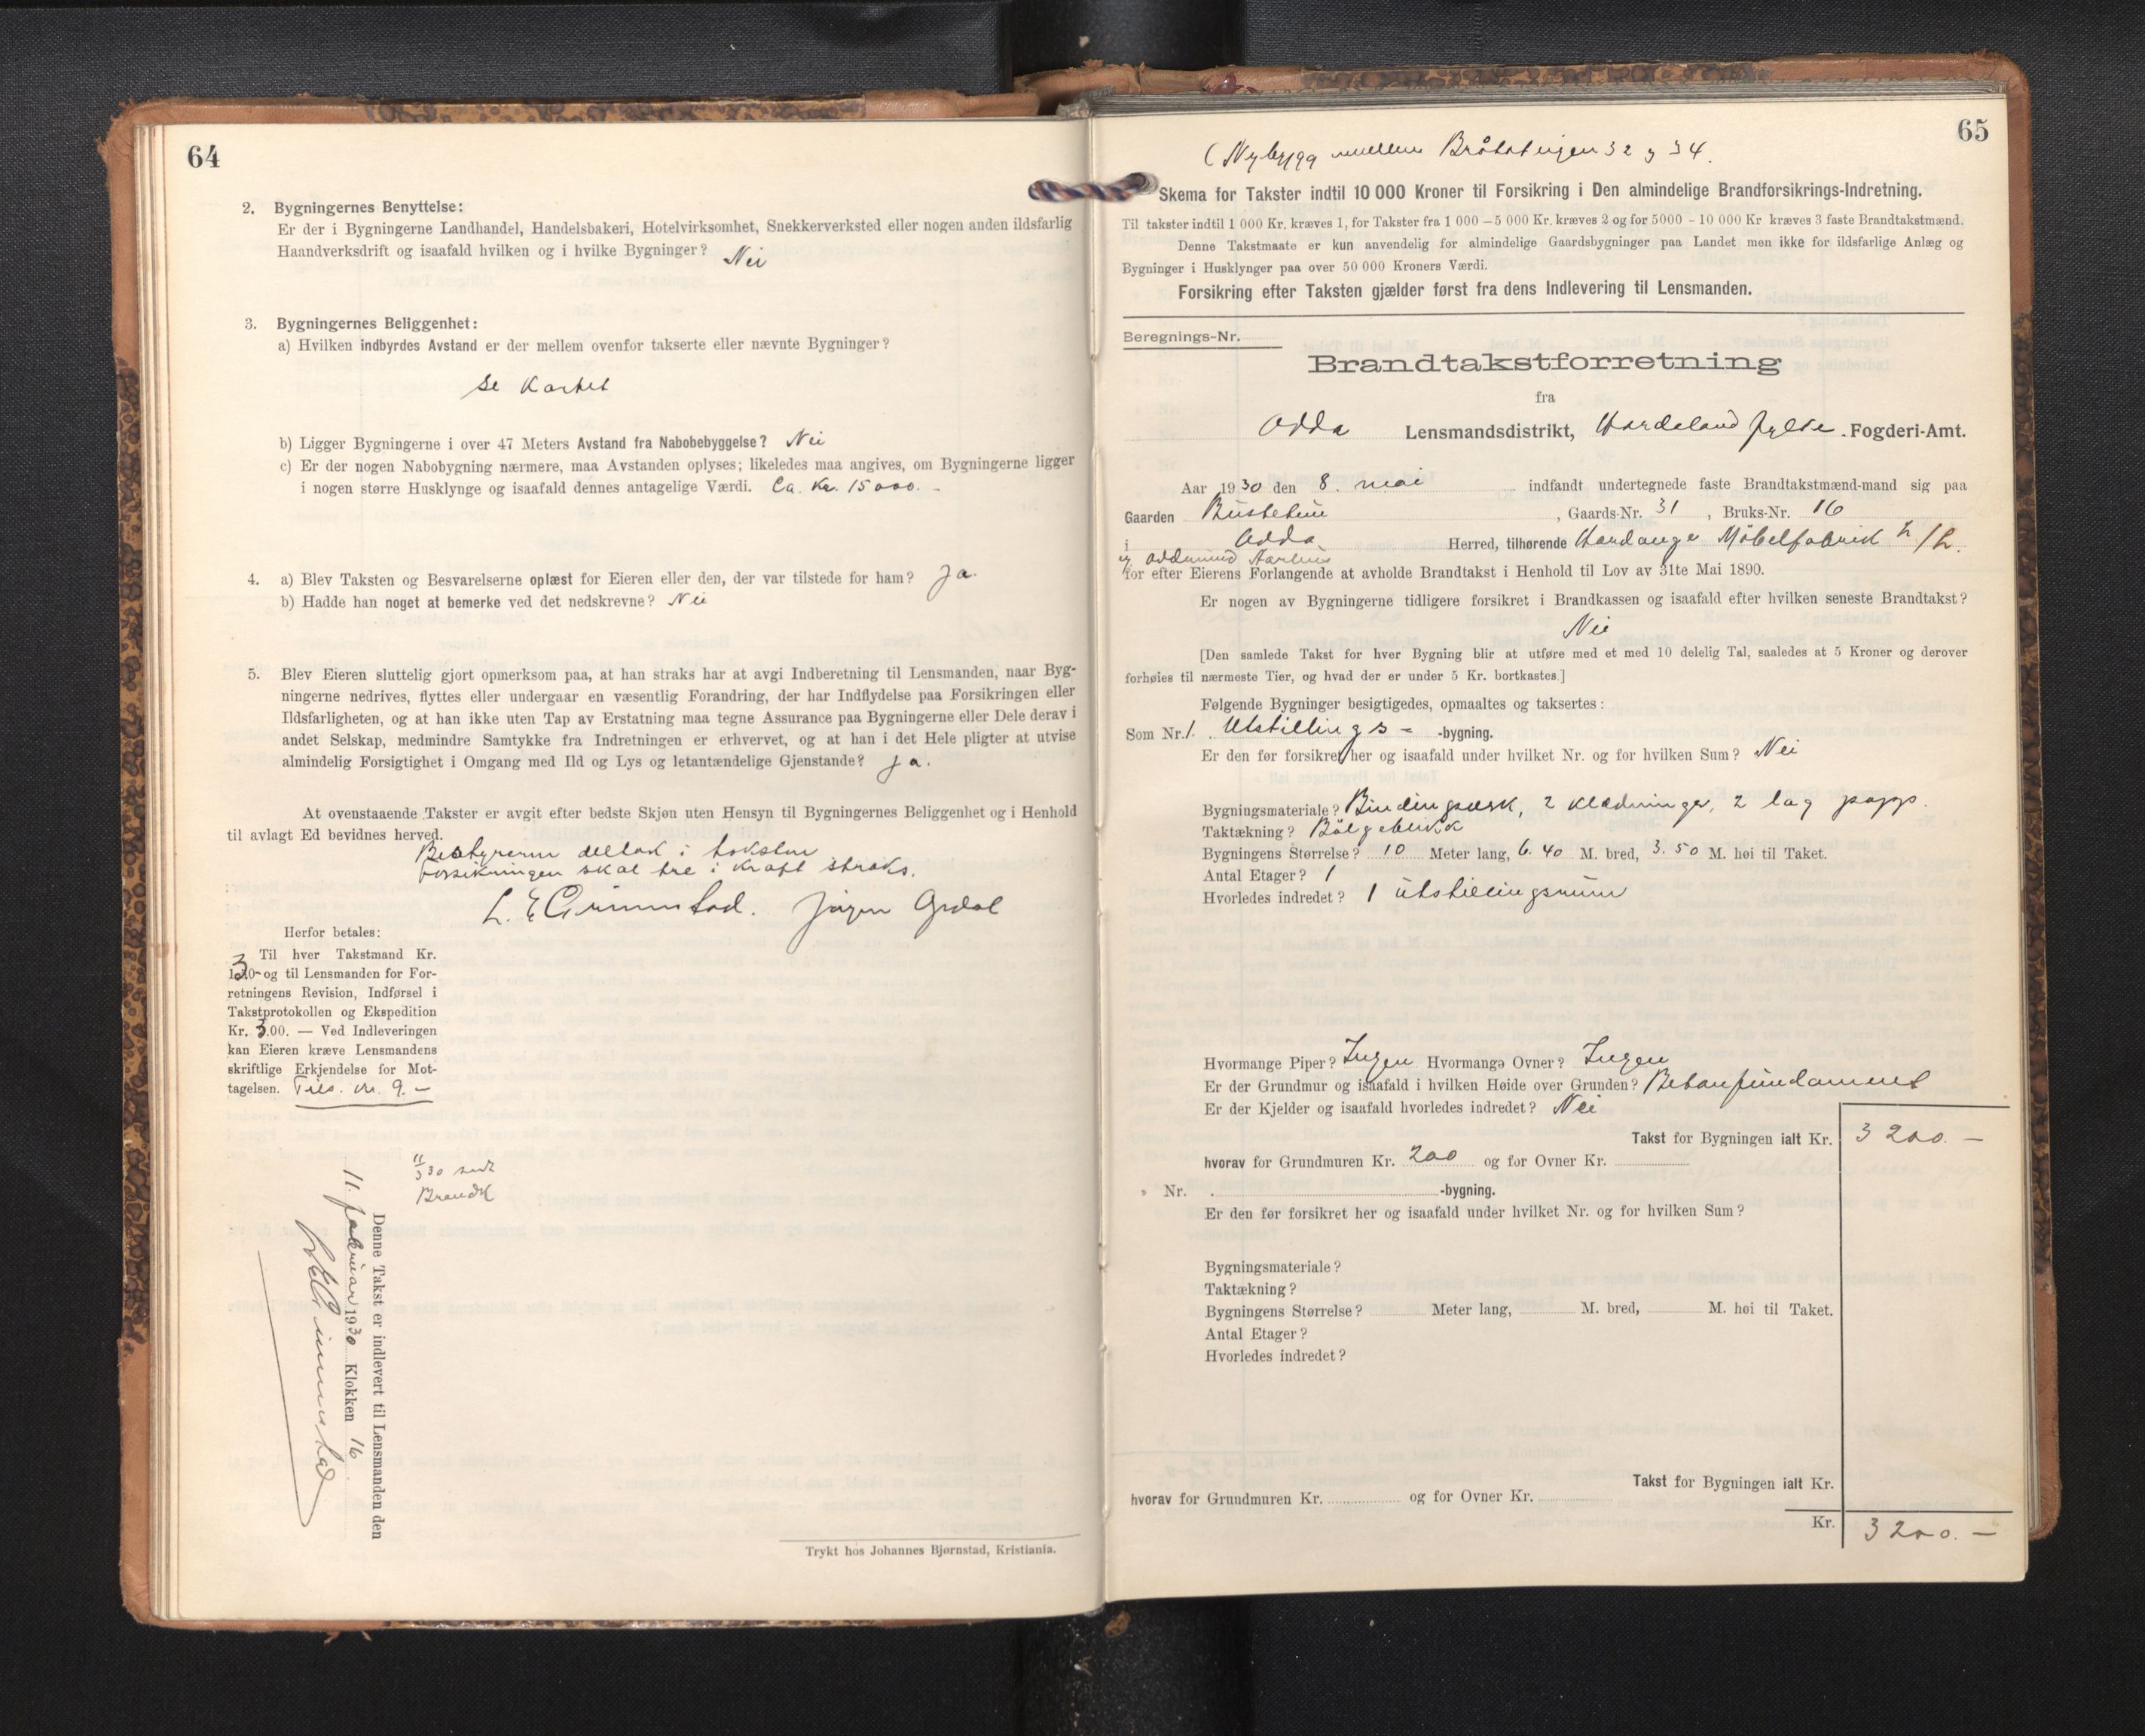 64
2. Bygningernes Benyttelse:
Er der i Bygningerne Landhandel, Handelsbakeri, Hotelvirksomhet, Snekkerverksted eller nogen anden ildsfarlig
Haandverksdrift og isaafald hvilken og i hvilke Bygninger? Nei
3. Bygningernes Beliggenhet:
a) Hvilken indbyrdes Avstand er der mellem ovenfor takserte eller nævnte Bygninger?
se kartet
b) Ligger Bygningerne i over 47 Meters Avstand fra Nabobebyggelse? Nei
c) Er der nogen Nabobygning nærmere, maa Avstanden oplyses; likeledes maa angives, om Bygningerne ligger
i nogen større Husklynge og isaafald dennes antagelige Værdi. Ca. Kr. 15000. -
4. a) Blev Taksten og Besvarelserne oplæst for Eieren eller den, der var tilstede for ham? Ja.
b) Hadde han noget at bemerke ved det nedskrevne? Nei
5. Blev Eieren sluttelig gjort opmerksom paa, at han straks har at avgi Indberetning til Lensmanden, naar Byg-
ningerne nedrives, flyttes eller undergaar en væsentlig Forandring, der har Indflydelse paa Forsikringen eller
Ildsfarligheten, og at han ikke uten Tap av Erstatning maa tegne Assurance paa Bygningerne eller Dele derav i
andet Selskap, medmindre Samtykke fra Indretningen er erhvervet, og at han i det Hele pligter at utvise
almindelig Forsigtighet i Omgang med Ild og Lys og letantændelige Gjenstande? Ja.
At ovenstaaende Takster er avgit efter bedste Skjøn uten Hensyn til Bygningernes Beliggenhet og i Henhold
til avlagt Ed bevidnes herved.
Bestyreren deltok i taksten
Forsikringen skal tre i kraft straks.
L. E Grimstad. Jørgen
Herfor betales:
Til hver Takstmand Kr.
3 og til Lensmanden for For-
retningens Revision, Indførsel i
Takstprotokollen og Ekspedition
Kr. 3.00. — Ved Indleveringen
kan Eieren kræve Lensmandens
skriftlige Erkjendelse for Mot-
tagelsen. Tils. kr. 9. —
30 sendt
Brandk
Denne Takst er indlevert til Lensmanden den
11. februar 1930 Klokken 16
LEGrimstad
Trykt hos Johannes Bjørnstad, Kristiania.
65
(Nybygg mellem Bråtatingen 32 og 34.
Skema for Takster indtil 10 000 Kroner til Forsikring i Den almindelige Brandforsikrings-Indretning.
Til takster indtil 1 000 Kr. kræves 1, for Takster fra 1 000 – 5 000 Kr. kræves 2 og for 5000 - 10 000 Kr kræves 3 faste Brandtakstmænd.
Denne Takstmaate er kun anvendelig for almindelige Gaardsbygninger paa Landet men ikke for ildsfarlige Anlæg og
Bygninger i Husklynger paa over 50 000 Kroners Værdi.
Forsikring efter Taksten gjælder først fra dens Indlevering til Lensmanden.
Beregnings-Nr.
Brandtakstforretning
fra
Odda Lensmandsdistrikt, Hordaland fylke. Fogderi-Amt.
Aar 1930 den 8. mai indfandt undertegnede faste Brandtakstmænd-mand sig paa
Gaarden Bustetun, Gaards-Nr. 31, Bruks-Nr. 16
i Odda Herred, tilhørende Hardanger Möbelfabrik
og Oddmund Aarhus
for efter Eierens Forlangende at avholde Brandtakst i Henhold til Lov av 31te Mai 1890.
Er nogen av Bygningerne tidligere forsikret i Brandkassen og isaafald efter hvilken seneste Brandtakst?
Nei
[Den samlede Takst for hver Bygning blir at utføre med et med 10 delelig Tal, saaledes at 5 Kroner og derover
forhøies til nærmeste Tier, og hvad der er under 5 Kr. bortkastes.]
Følgende Bygninger besigtigedes, opmaaltes og taksertes:
Som Nr. 1. Utstillings- -bygning.
Er den før forsikret her og isaafald under hvilket Nr. og for hvilken Sum? Nei
Bygningsmateriale? Bindingsverk, 2 klædninger, 2 lag papp.
Taktækning? Bölgeblikk
Bygningens Størrelse? 10 Meter lang, 6.40 M. bred, 3.50 M. høi til Taket.
Antal Etager? 1
Hvorledes indredet? 1 utstillingsrum
Hvormange Piper? Ingen Hvormange Ovner? Ingen
Er der Grundmur og isaafald i hvilken Høide over Grunden? Betonfundament
Er der Kjelder og isaafald hvorledes indredet? Nei
Takst for Bygningen ialt Kr. 3200. —
hvorav for Grundmuren Kr. 200 og for Ovner Kr.
» Nr. -bygning.
Er den før forsikret her og isaafald under hvilket Nr. og for hvilken Sum?
Bygningsmateriale?
Taktækning?
Bygningens Størrelse? Meter lang, M. bred, M. høi til Taket.
Antal Etager?
Hvorledes indredet?
Takst for Bygningen ialt Kr.
hvorav for Grundmuren Kr. og for Ovner Kr.
Kr. 3200. —